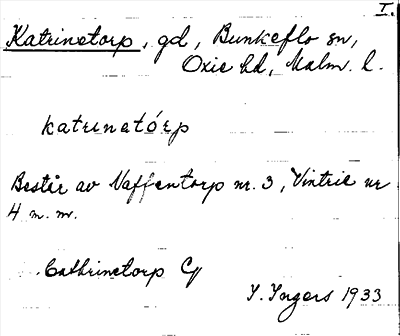 I.
Katrinetorp, gd, Bunkeflo sn,
Oxie hd, Malm. l.
katrinetórp
Består av Naffentorp nr. 3, Vintrie nr
4 m. m.
Cathrinetorp Cg
I. Ingers 1933